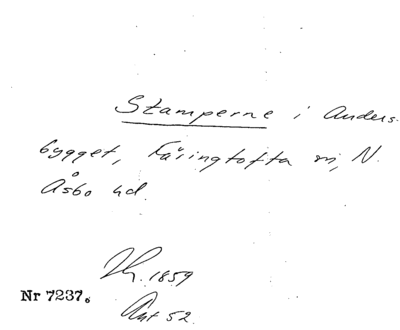 Stamperne i Anders-
bygget, Färingtofta sn, N.
Åsbo hd.
Th. 1859
Nr 7237.
Ant 52.